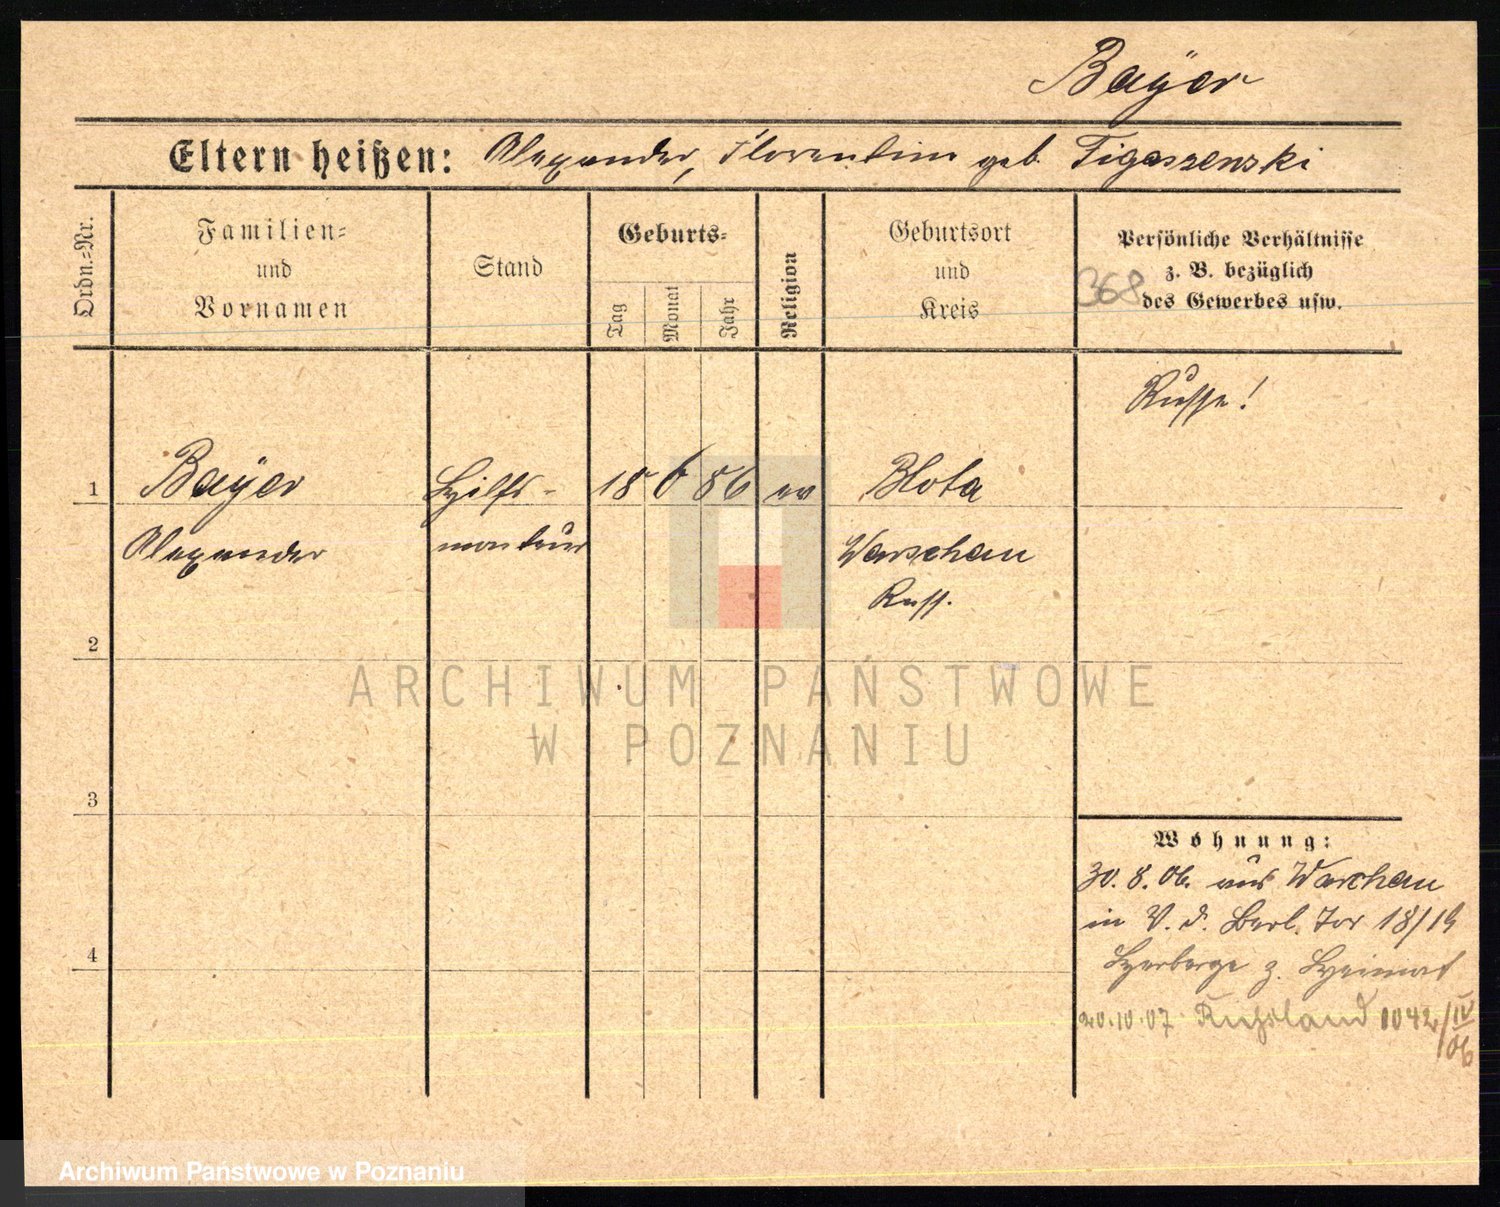 Bayer
Eltern heißen: Alexander, Florentine geb. Tigaszenski
Ordn.=Nr.
Familien=
und
Vornamen
Stand
Geburts=
Tag
Monat
Jahr
Religion
Geburtsort
und
Kreis
Persönliche Verhältnisse
z. B. bezüglich
des Gewerbes usw.
368
Russe!
1 Bayer Hilfs- 18 6 86 ev Blota
Alexander monteur Warschau
Russ.
2
3
4
Wohnung:
30. 8. 06. aus Warschau
in V. d. Berl. Tor 18/19
Herberge z. Heimat
20.10.07 Russland 1042/IV
06
ARCHIWUM PAŃSTWOWE
W POZNANIU
Archiwum Państwowe w Poznaniu